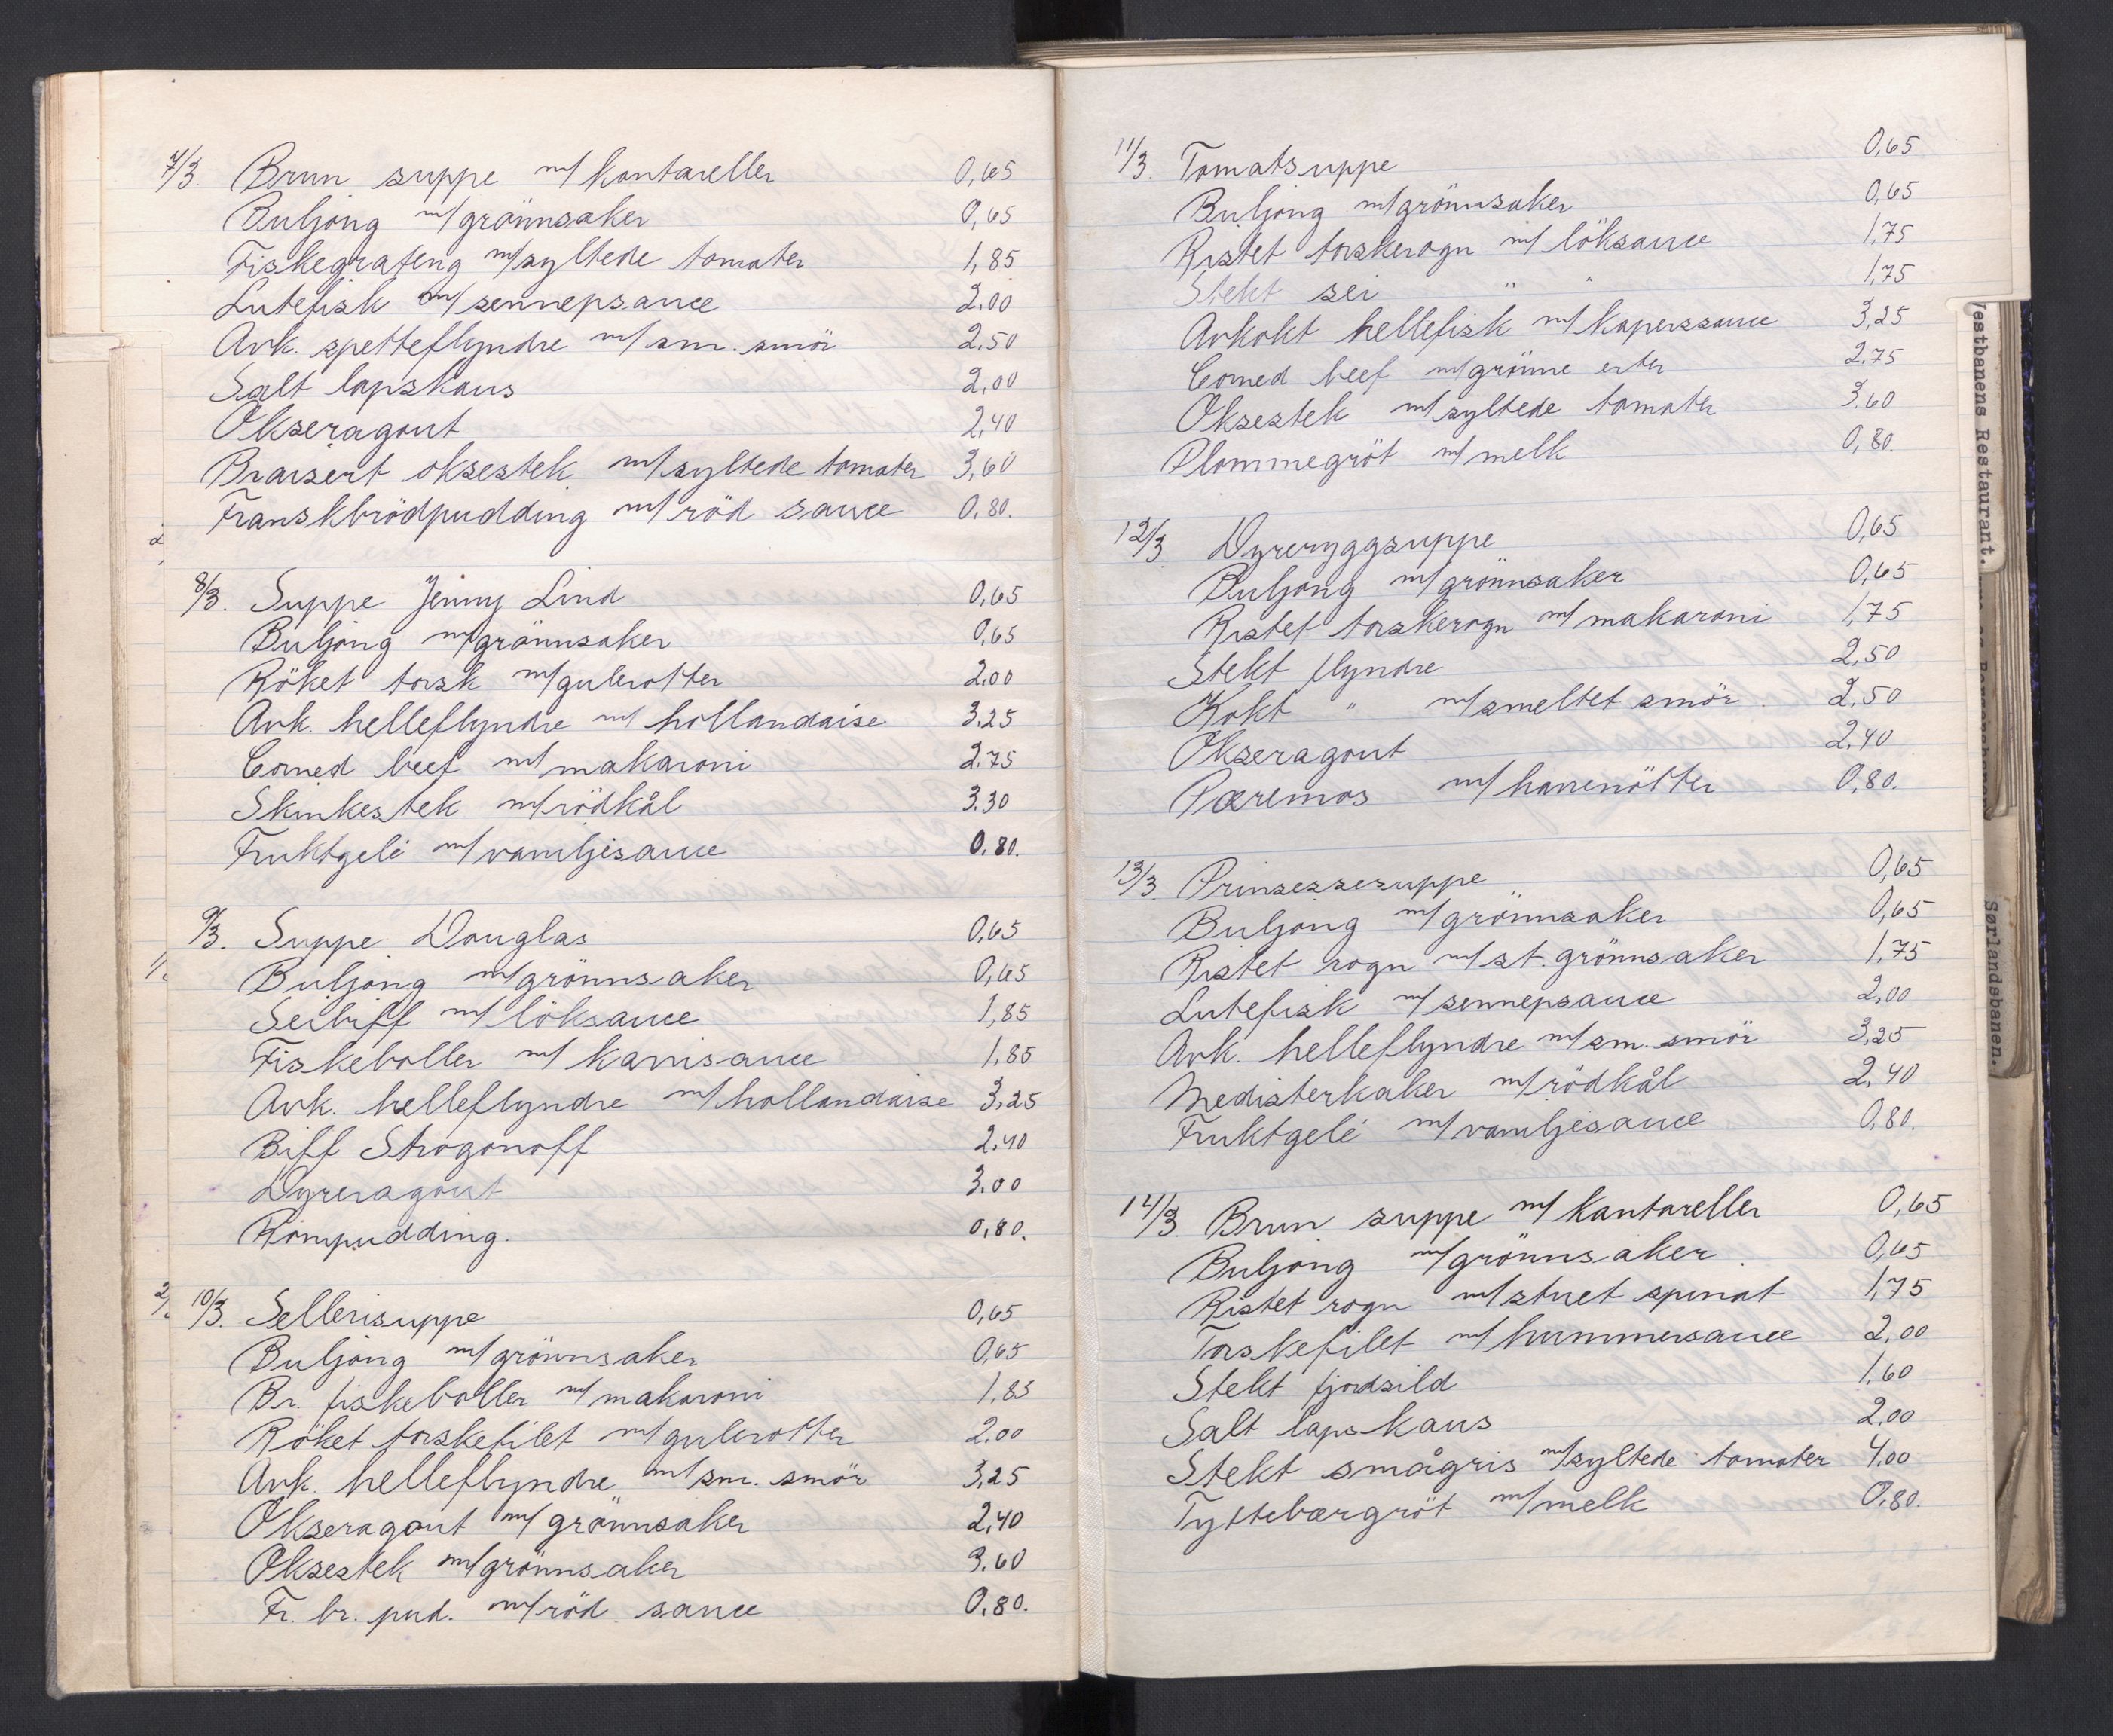 7/3. Brun suppe m/ kantareller 0,65
Buljong m/grönnsaker 0,65
Fiskegrateng m/syltede tomater 1,85
Lutefisk m/sennepsauce 2.00
Avk. spetteflyndre m/ sm. smör 2.50
Salt lapskaus 2,00
Okseragout 2,40
Braisert oksestek m/syltede tomater 3,60
Franskbrödpudding m/ röd sauce 0.80.
8/3. Suppe Jenny Lind 0,65
Buljong m/grönnsaker 0,65
Röket torsk m/gulerotter 2.00
Avk. helleflyndre m/ hollandaise 3.25
Corned beef m/ makaroni 2.75
Skinkestek m/rödkål 3.30
Fruktgelé m/vaniljesauce 0.80.
9/3. Suppe Douglas 0,65
Buljong m/grönnsaker 0,65
Seibiff m/ löksauce 1,85
Fiskeboller m/ karrisauce 1,85
Avk. helleflyndre m/hollandaise 3,25
Biff Strogonoff 2,40
Dyreragout 3.00
Rompudding. 0,80.
10/3. Sellerisuppe 0,65
Buljong m/grönnsaker 0,65
Br. fiskeboller m/ makaroni 1,85
Röket torskefilet m/gulerotter 2.00
Avk. helleflyndre m/sm. smör 3,25
Okseragout m/ grönnsaker 2,40
Oksestek m/grönnsaker 3.60
Fr. br. pud. m/röd sauce 0,80.
11/3. Tomatsuppe 0,65
Buljong m/grönnsaker 0,65
Ristet torskerogn m/ löksauce 1,75
Stekt sei " " 1,75
Avkokt hellefisk m/ kaperssauce 3,25
Corned beef m/grönne erter 2,75
Oksestek m/syltede tomater 3.60
Plommegröt m/melk 0,80.
12/3. Dyreryggsuppe 0,65
Buljong m/grönnsaker 0,65
Ristet torskerogn m/ makaroni 1,75
Stekt flyndre 2,50
Kokt " m/smeltet smör. 2,50
Okseragout 2,40
Pæremos m/hasselnötter 0,80.
13/3. Prinsessesuppe 0,65
Buljong m/grönnsaker 0,65
Ristet rogn m/st. grönnsaker 1,75
Lutefisk m/sennepsauce 2,00
Avk. helleflyndre m/sm. smör 3,25
Medisterkaker m/rödkål 2,40
Fruktgelé m/vaniljesauce 0,80.
14/3. Brun suppe m/ kantareller 0,65
Buljong m/grönnsaker 0,65
Ristet rogn m/stuet spinat 1,75
Torskefilet m/hummersauce 2,00
Stekt fjordsild 1,60
Salt lapskaus 2,00
Stekt smågris m/syltede tomater 4,00
Tyttebærgröt m/melk 0,80.
Vestbanens Restaurant.
Sørlandsbanen.